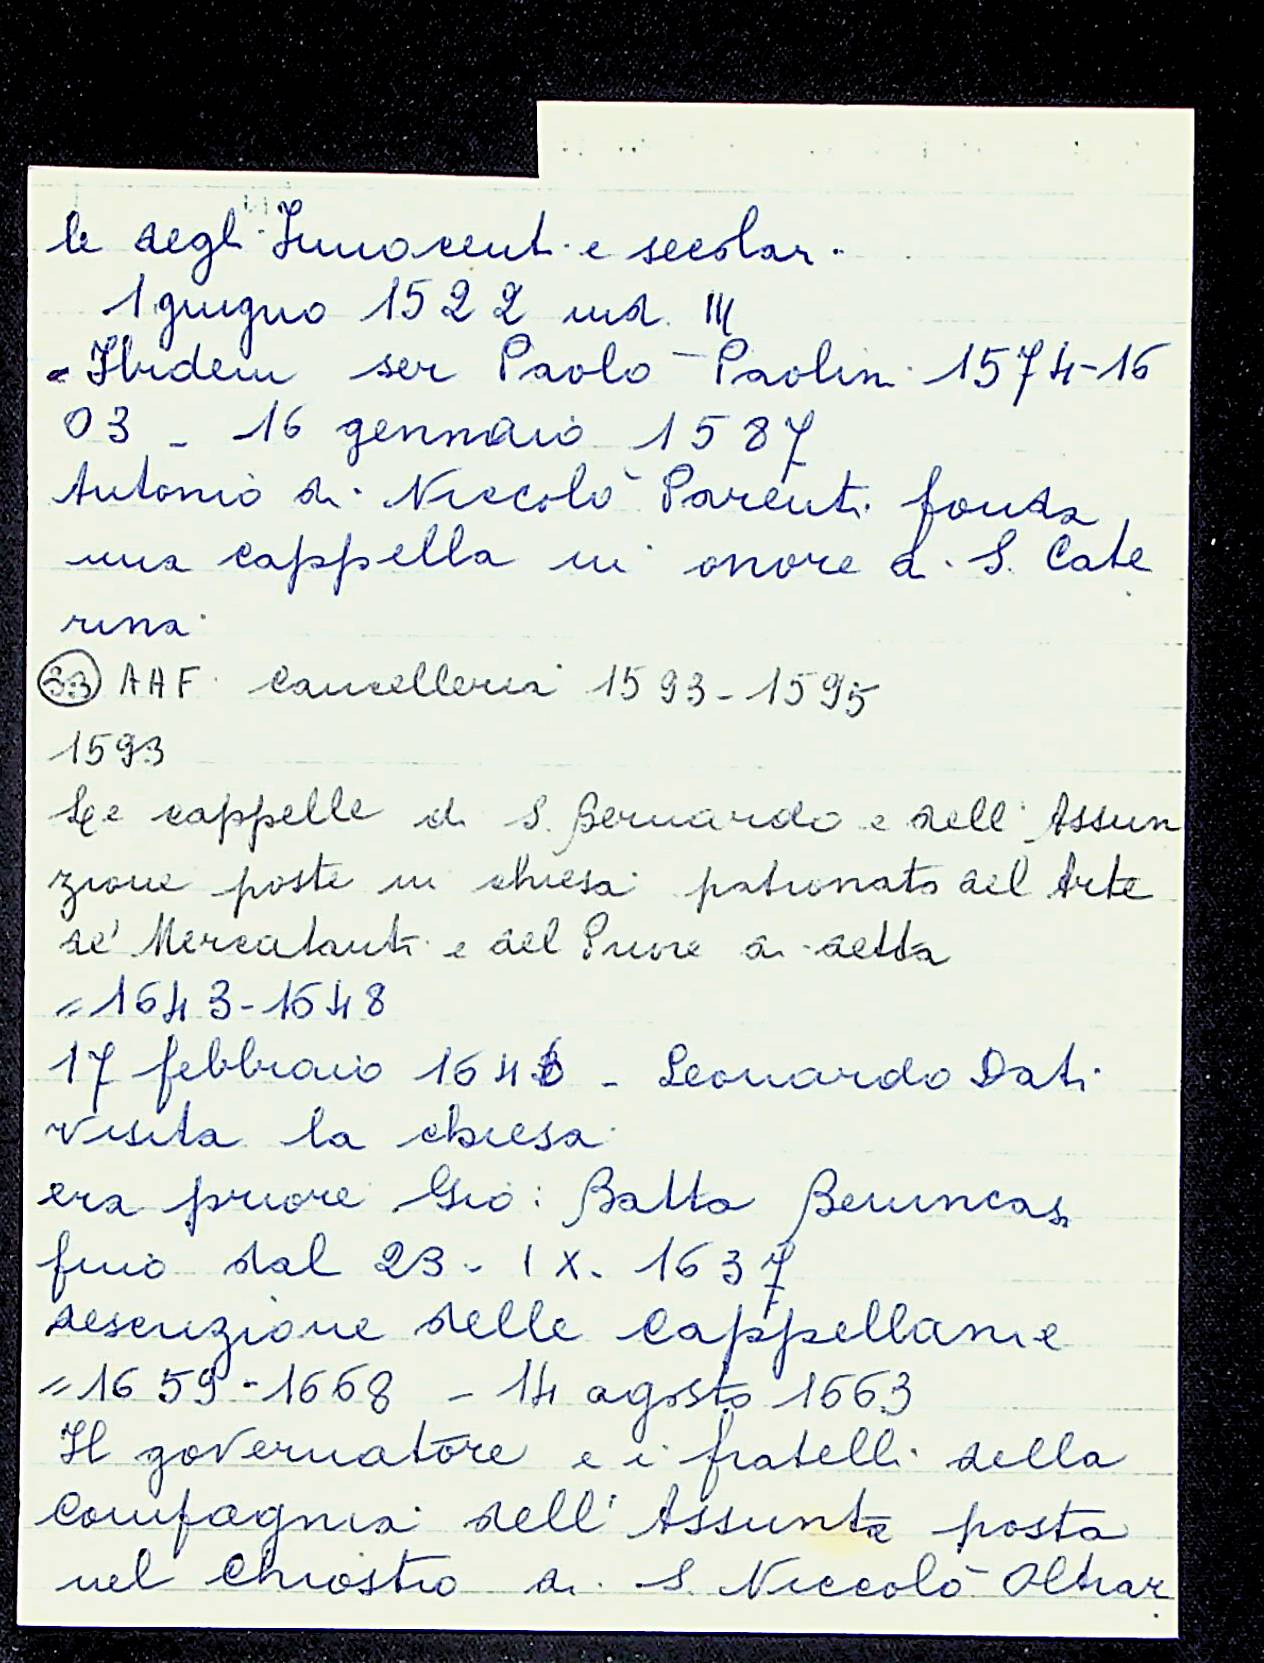 le degli Innocenti e secolari
1 giugno 1522 ind. III
= Ibidem ser Paolo Paolini 1574-16
03 - 16 gennaio 1587
Antonio di Niccolò Parenti fonda
una cappella in onore di S. Cate
rina
33 AAF Cancelleria 1593-1595
1593
Le cappelle di S. Bernardo e dell'Assun
zione poste in chiesa patronato del Arte
de' Mercatanti e del Priore di detta
= 1643-1648
17 febbraio 164 - Leonardo Dati
visita la chiesa
era priore Gio: Batta Benincas
fino dal 23 - IX - 1637
descrizione delle Cappellanie
= 1659-1668 - 14 agosto 1663
Il governatore e i fratelli della
Compagnia dell'Assunta posta
nel Chiostro di S. Niccolò Oltrar